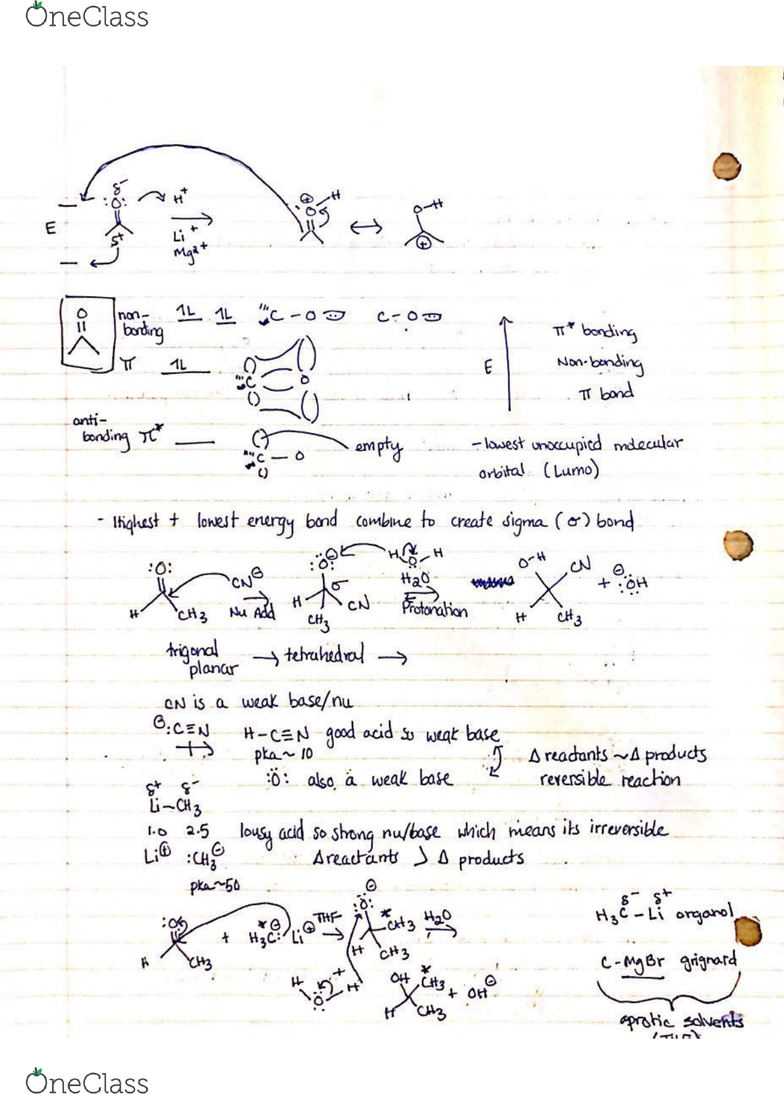 OneClass
δ-
:O:
H+
E
Li+
Mg2+
δ+
⊕
H
O
↔
O-H
⊕
O
non-
bonding
1L 1L
C-O
C-O
π* bonding
E
Non-bonding
π 1L
C
O
π bond
anti-
bonding π*
C-O
empty
-lowest unoccupied molecular
orbital (Lumo)
- Highest + lowest energy bond combine to create sigma (σ) bond
:O:
CN⊖
H
CH3
Nu Add
:O:⊖
σ
H
CN
CH3
H O H
H2O
Protonation
O-H
CN
H
CH3
+ :OH⊖
trigonal
planar
→ tetrahedral →
CN is a weak base/nu
⊖:C≡N
H-C≡N good acid so weak base
pka~10
:O: also a weak base
Δ reactants ~ Δ products
reversible reaction
δ+ δ-
Li-CH3
1.0 2.5 lousy acid so strong nu/base which means its irreversible
Li⊕ :CH3⊖
Δreactants > Δ products
pka~50
:O:
H
CH3
+ H3C:⊖ Li⊕
*
THF
⊖
:O:
*
CH3
H
CH3
H2O
H O H
+
OH
*
CH3
H
CH3
+ OH⊖
δ- δ+
H3C-Li organol
C-MgBr grignard
aprotic solvents
OneClass